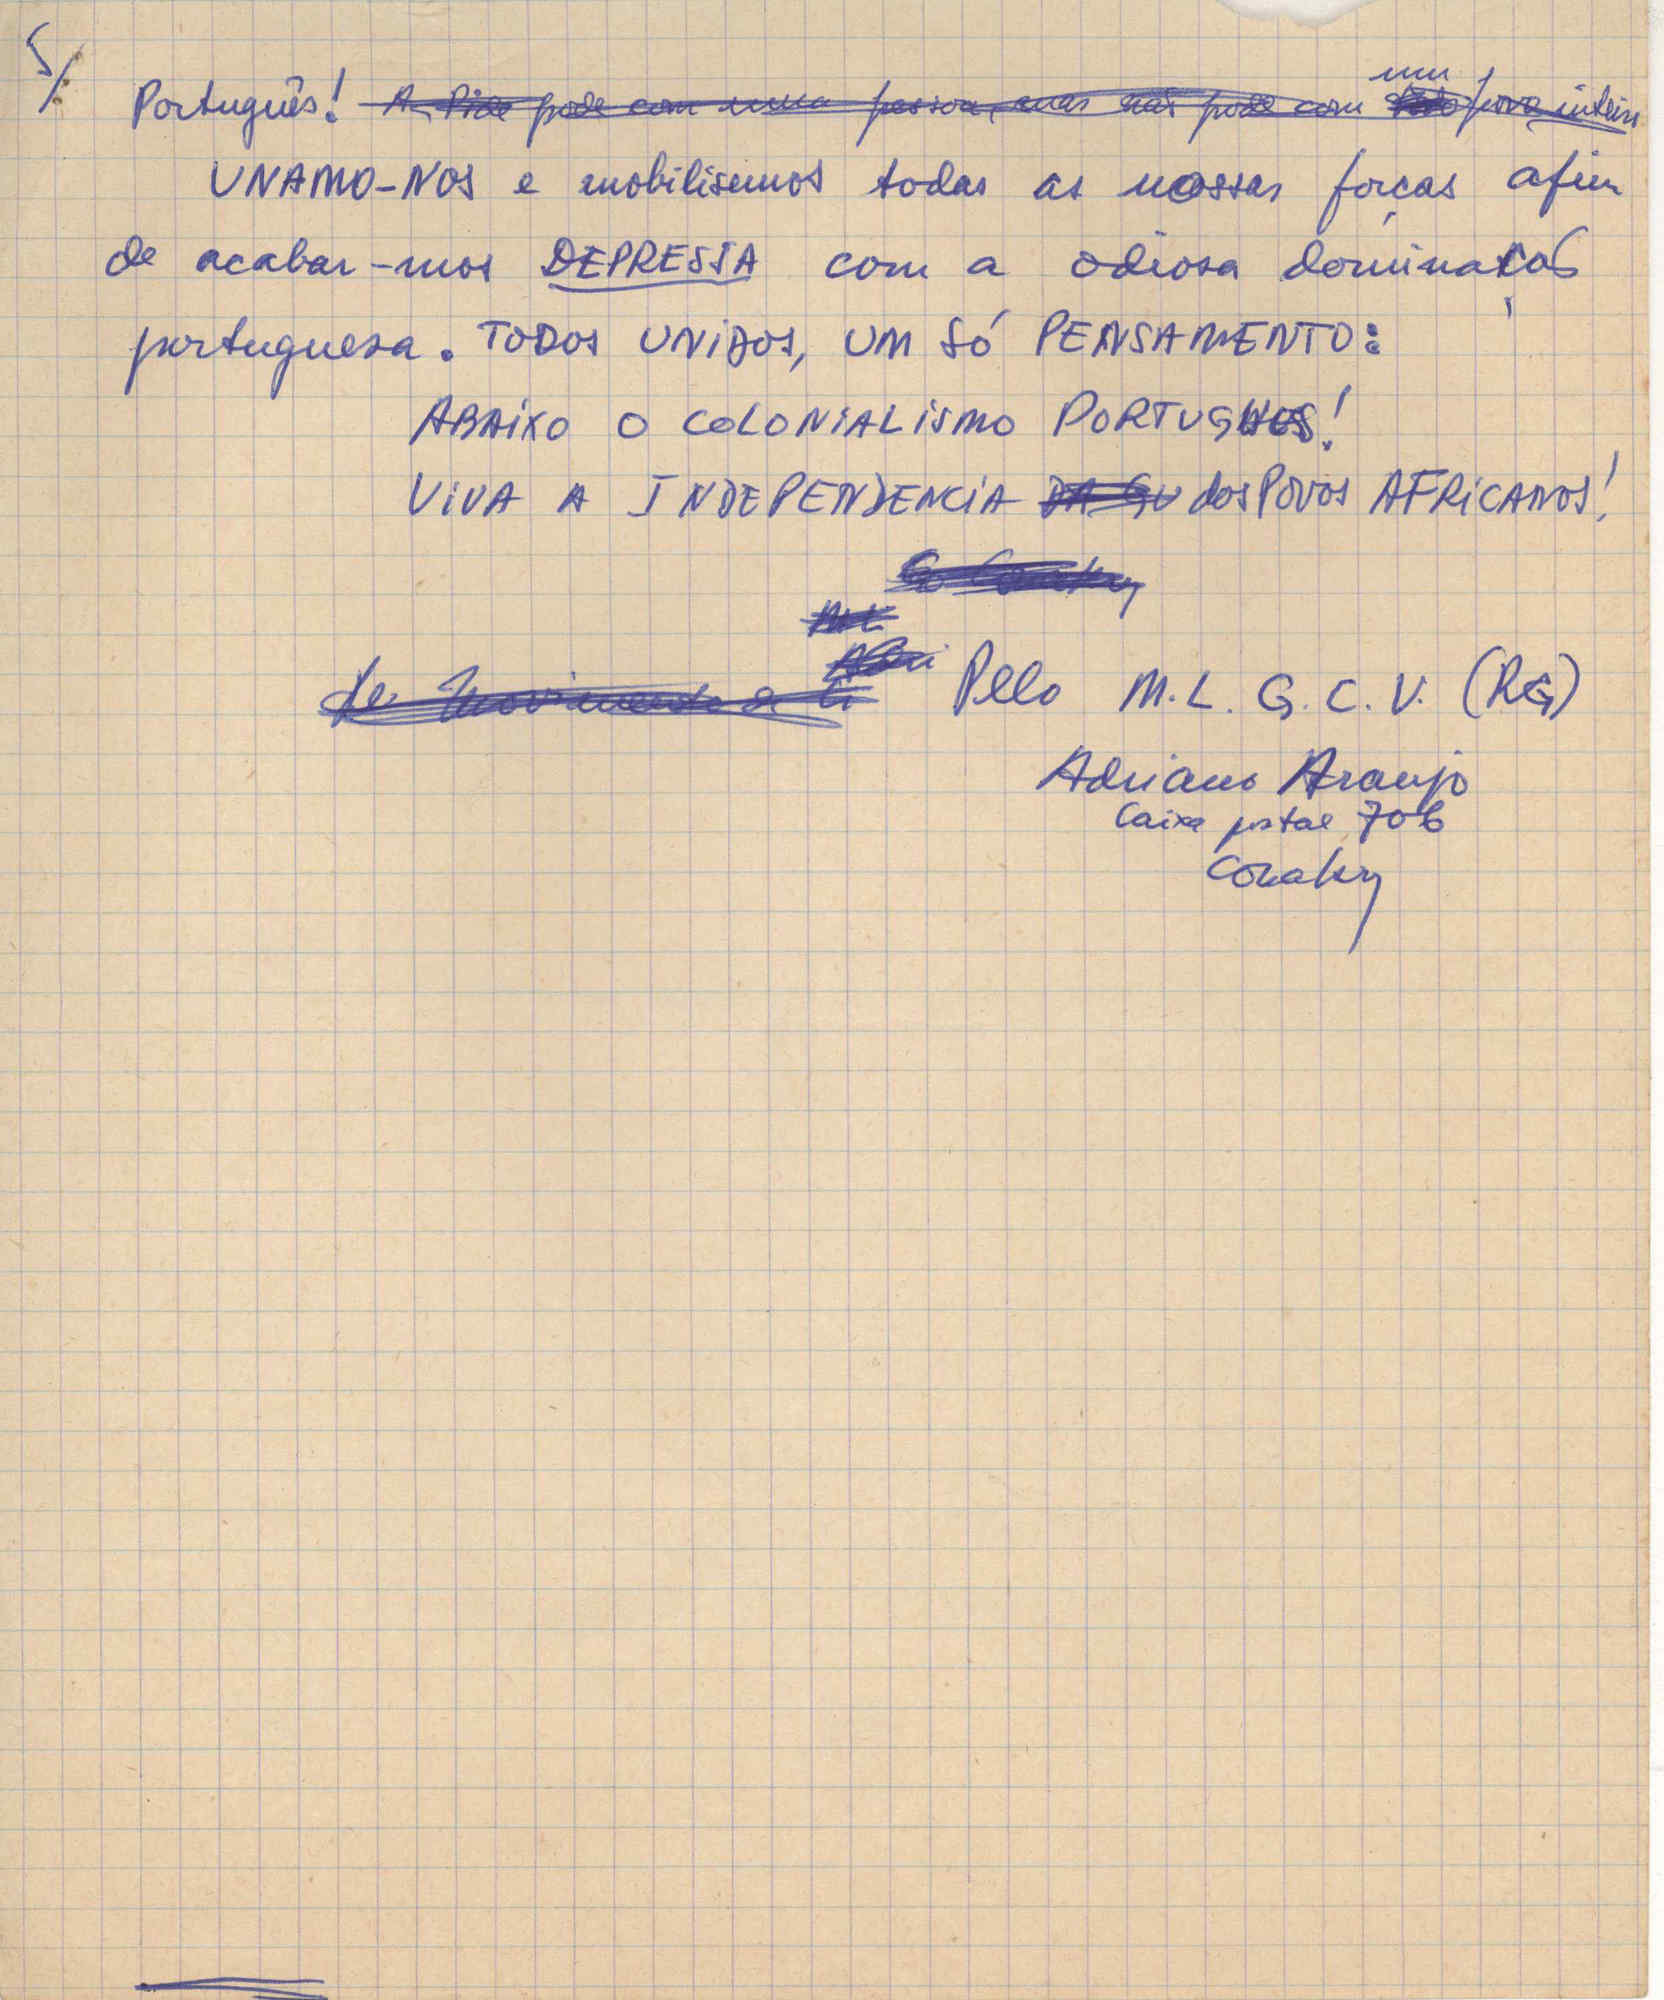 5/
Português! A Pide pode com uma pessoa, mas não pode com um povo inteiro
UNAMO-NOS e mobilisemos todas as nossas forças afim
de acabar-mos DEPRESSA com a odiosa dominação
portuguesa. TODOS UNIDOS, UM SÓ PENSAMENTO:
ABAIXO O COLONIALISMO PORTUGUES!
VIVA A INDEPENDENCIA DA GU dos POVOS AFRICANOS!
de Movimento de Li Pelo M.L.G.C.V. (RG)
Adriano Araujo
Caixa postal 706
Conakry